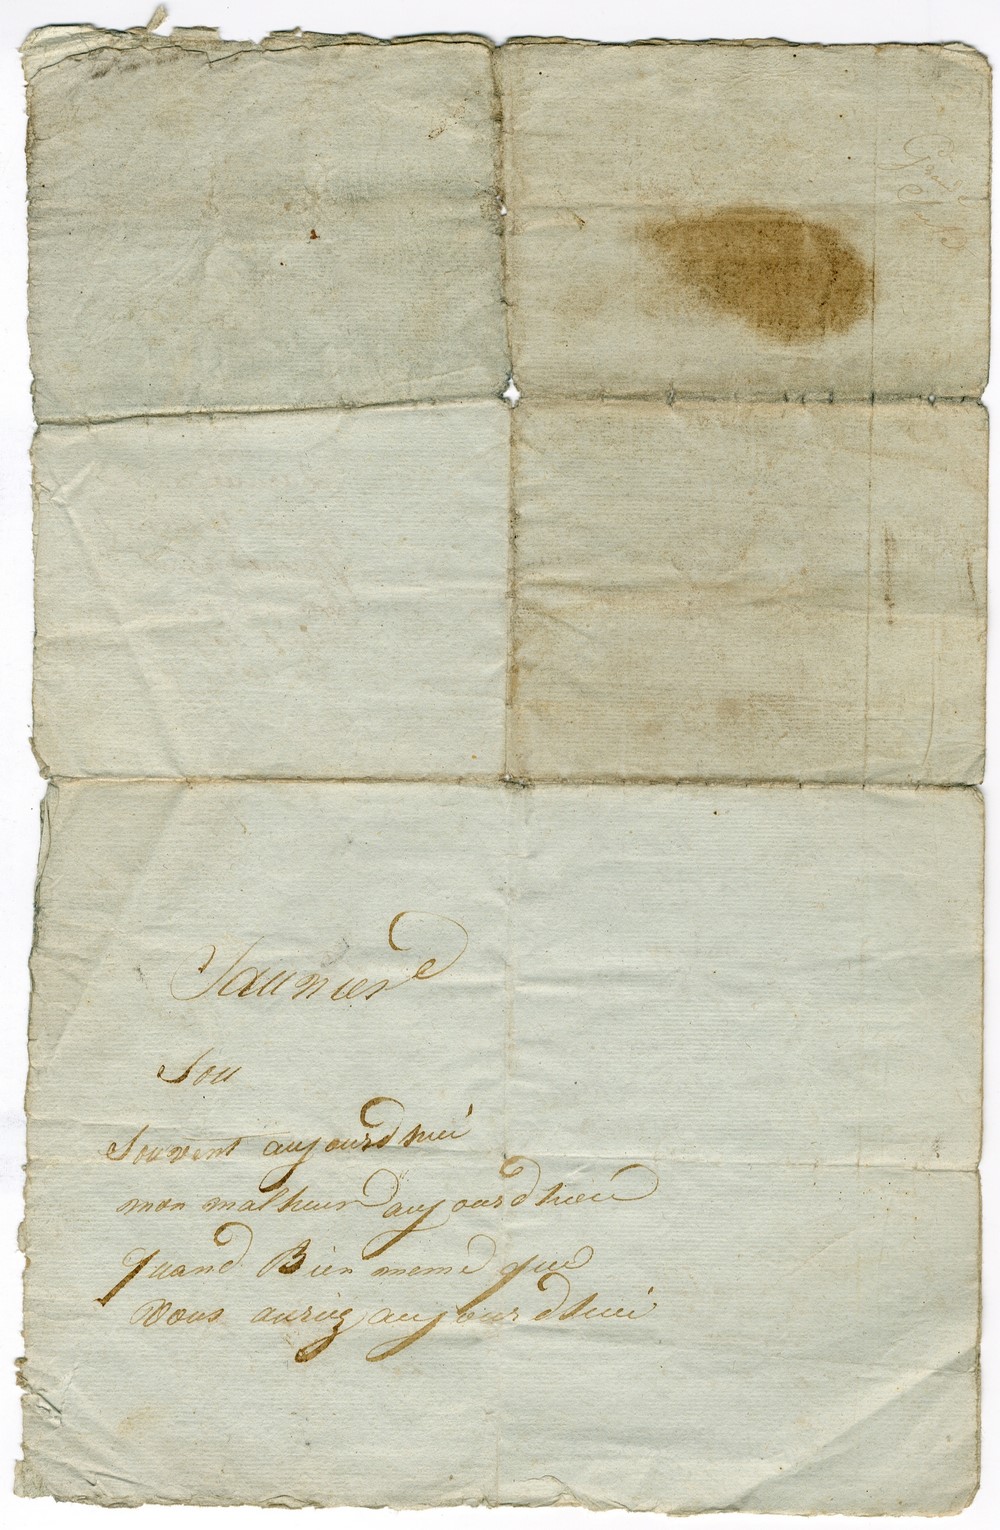 Sou
Souvent aujourdhui
mon malheur aujourdhui
quand Bien meme que
Vous auriez aujourdhui